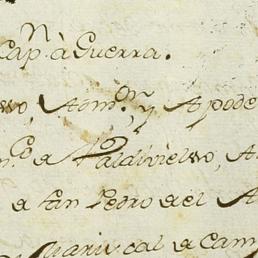 Capn. à Guerra.
Admon. y Apode
co de Valdivielso, A
de San Pedro del A
Mariscal de Cam